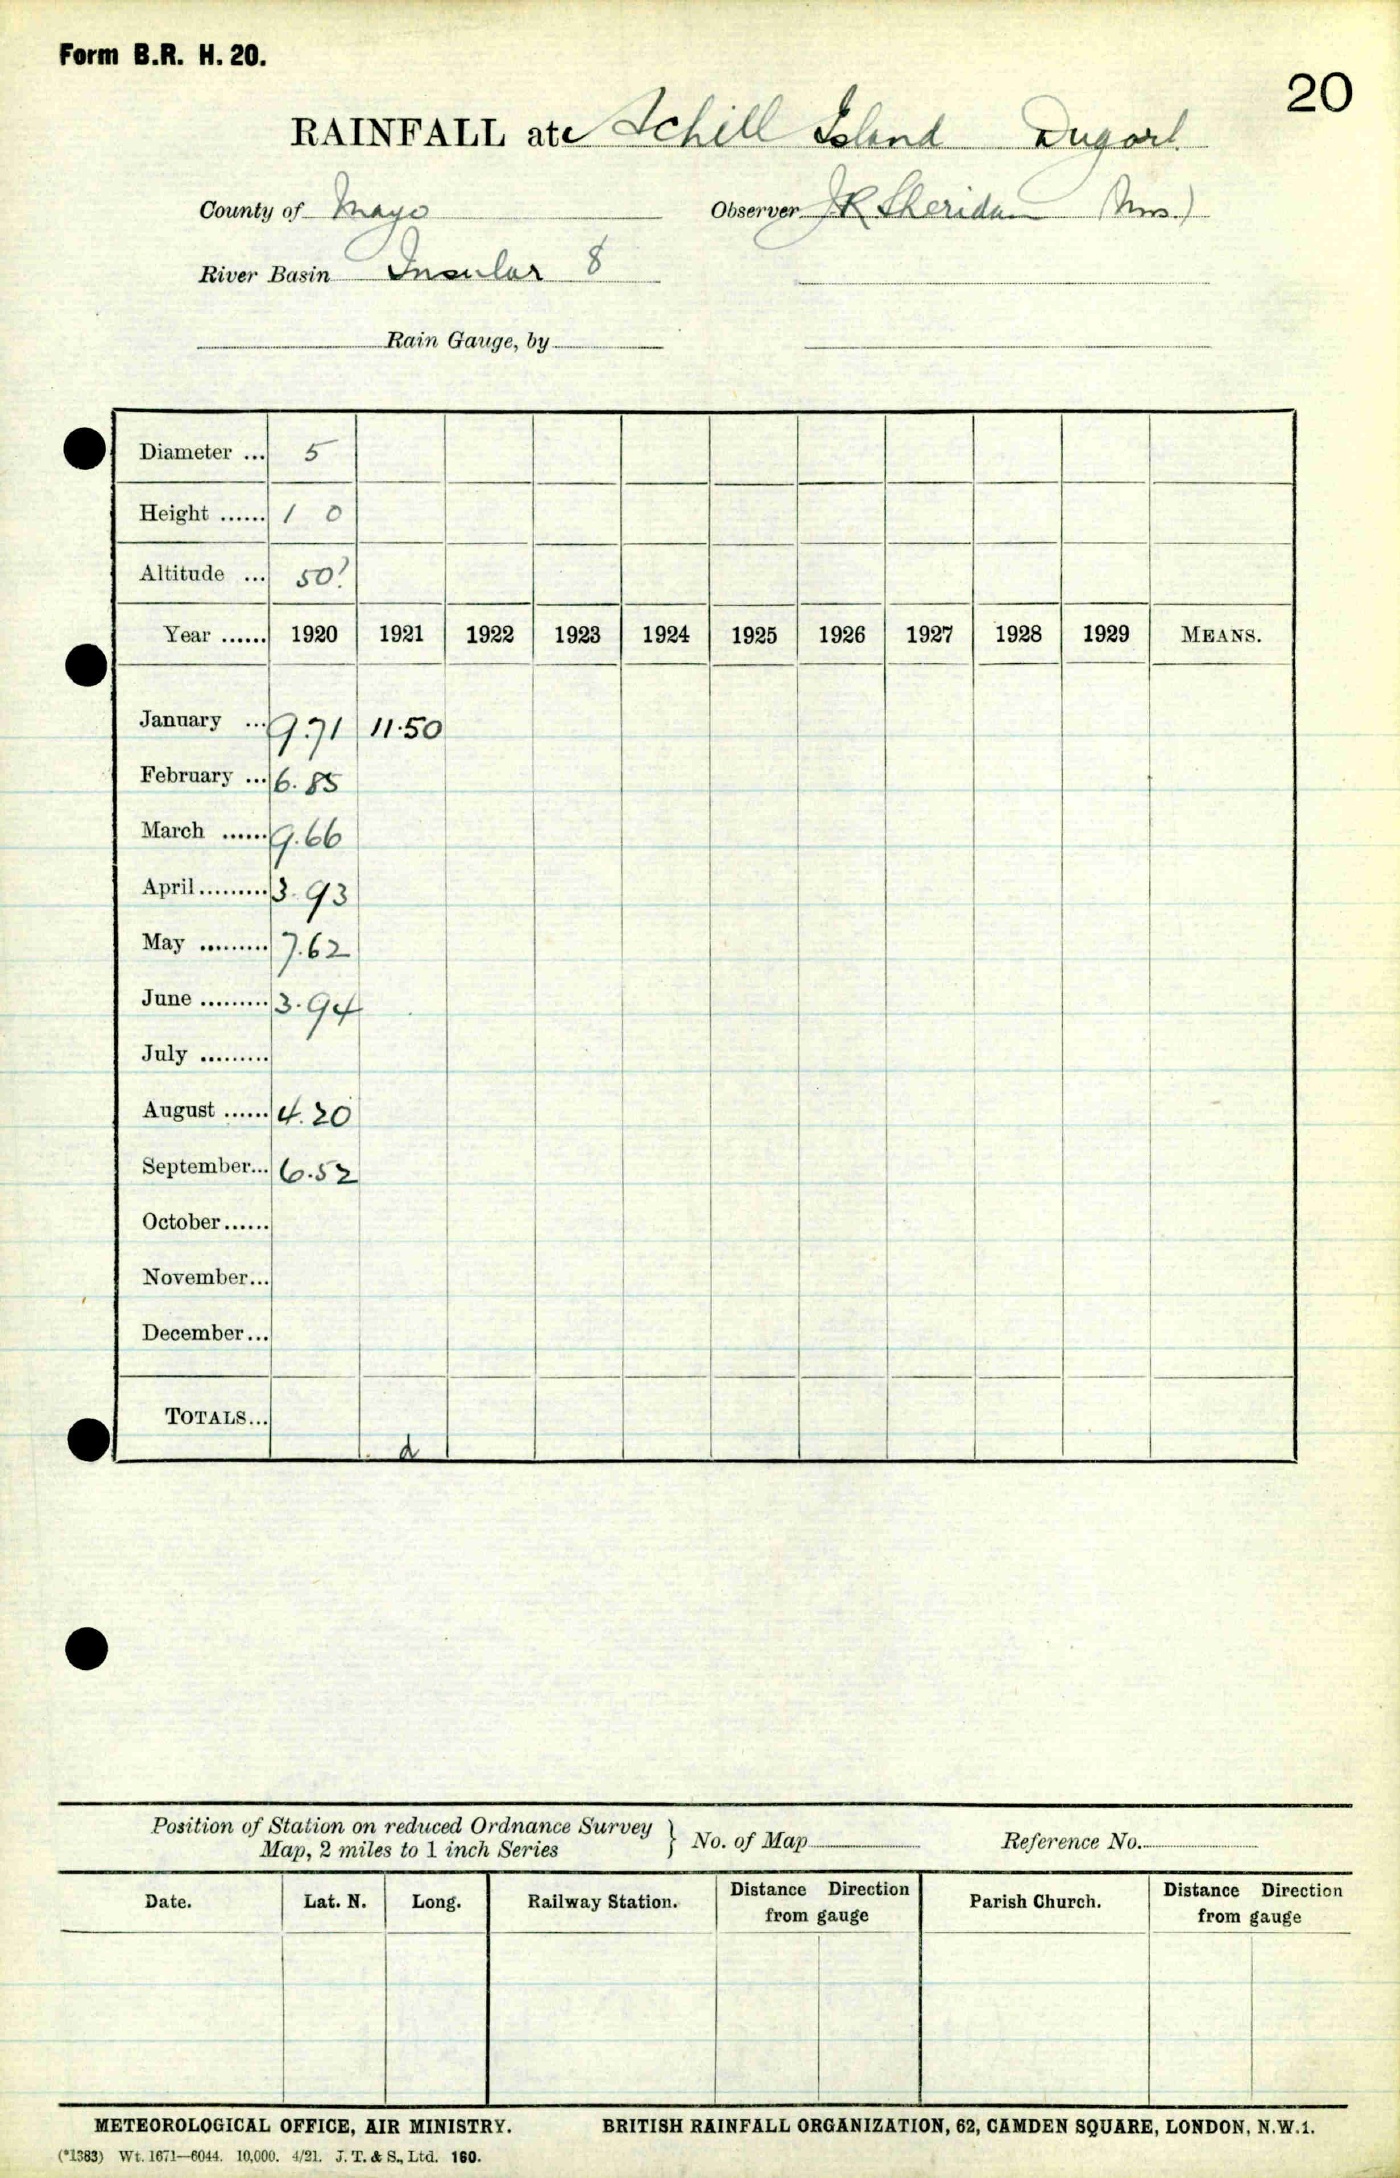 Form B.R. H. 20.
20
RAINFALL at Achill Island Dugort
County of Mayo Observer J R Sheridan (Mrs.)
River Basin Insular 8
Rain Gauge, by
Diameter ... 5
Height ...... 1 0
Altitude ... 50?
Year ...... 1920 1921 1922 1923 1924 1925 1926 1927 1928 1929 MEANS.
January ... 9.71 11.50
February ... 6.85
March ...... 9.66
April ......... 3.93
May ......... 7.62
June ......... 3.94
July .........
August ...... 4.20
September... 6.52
October......
November...
December...
TOTALS...
d
Position of Station on reduced Ordnance Survey
Map, 2 miles to 1 inch Series } No. of Map Reference No.
Date. Lat. N. Long. Railway Station. Distance Direction from gauge Parish Church. Distance Direction from gauge
METEOROLOGICAL OFFICE, AIR MINISTRY. BRITISH RAINFALL ORGANIZATION, 62, CAMDEN SQUARE, LONDON, N.W.1.
(*1383) Wt. 1671—6044. 10,000. 4/21. J. T. & S., Ltd. 160.